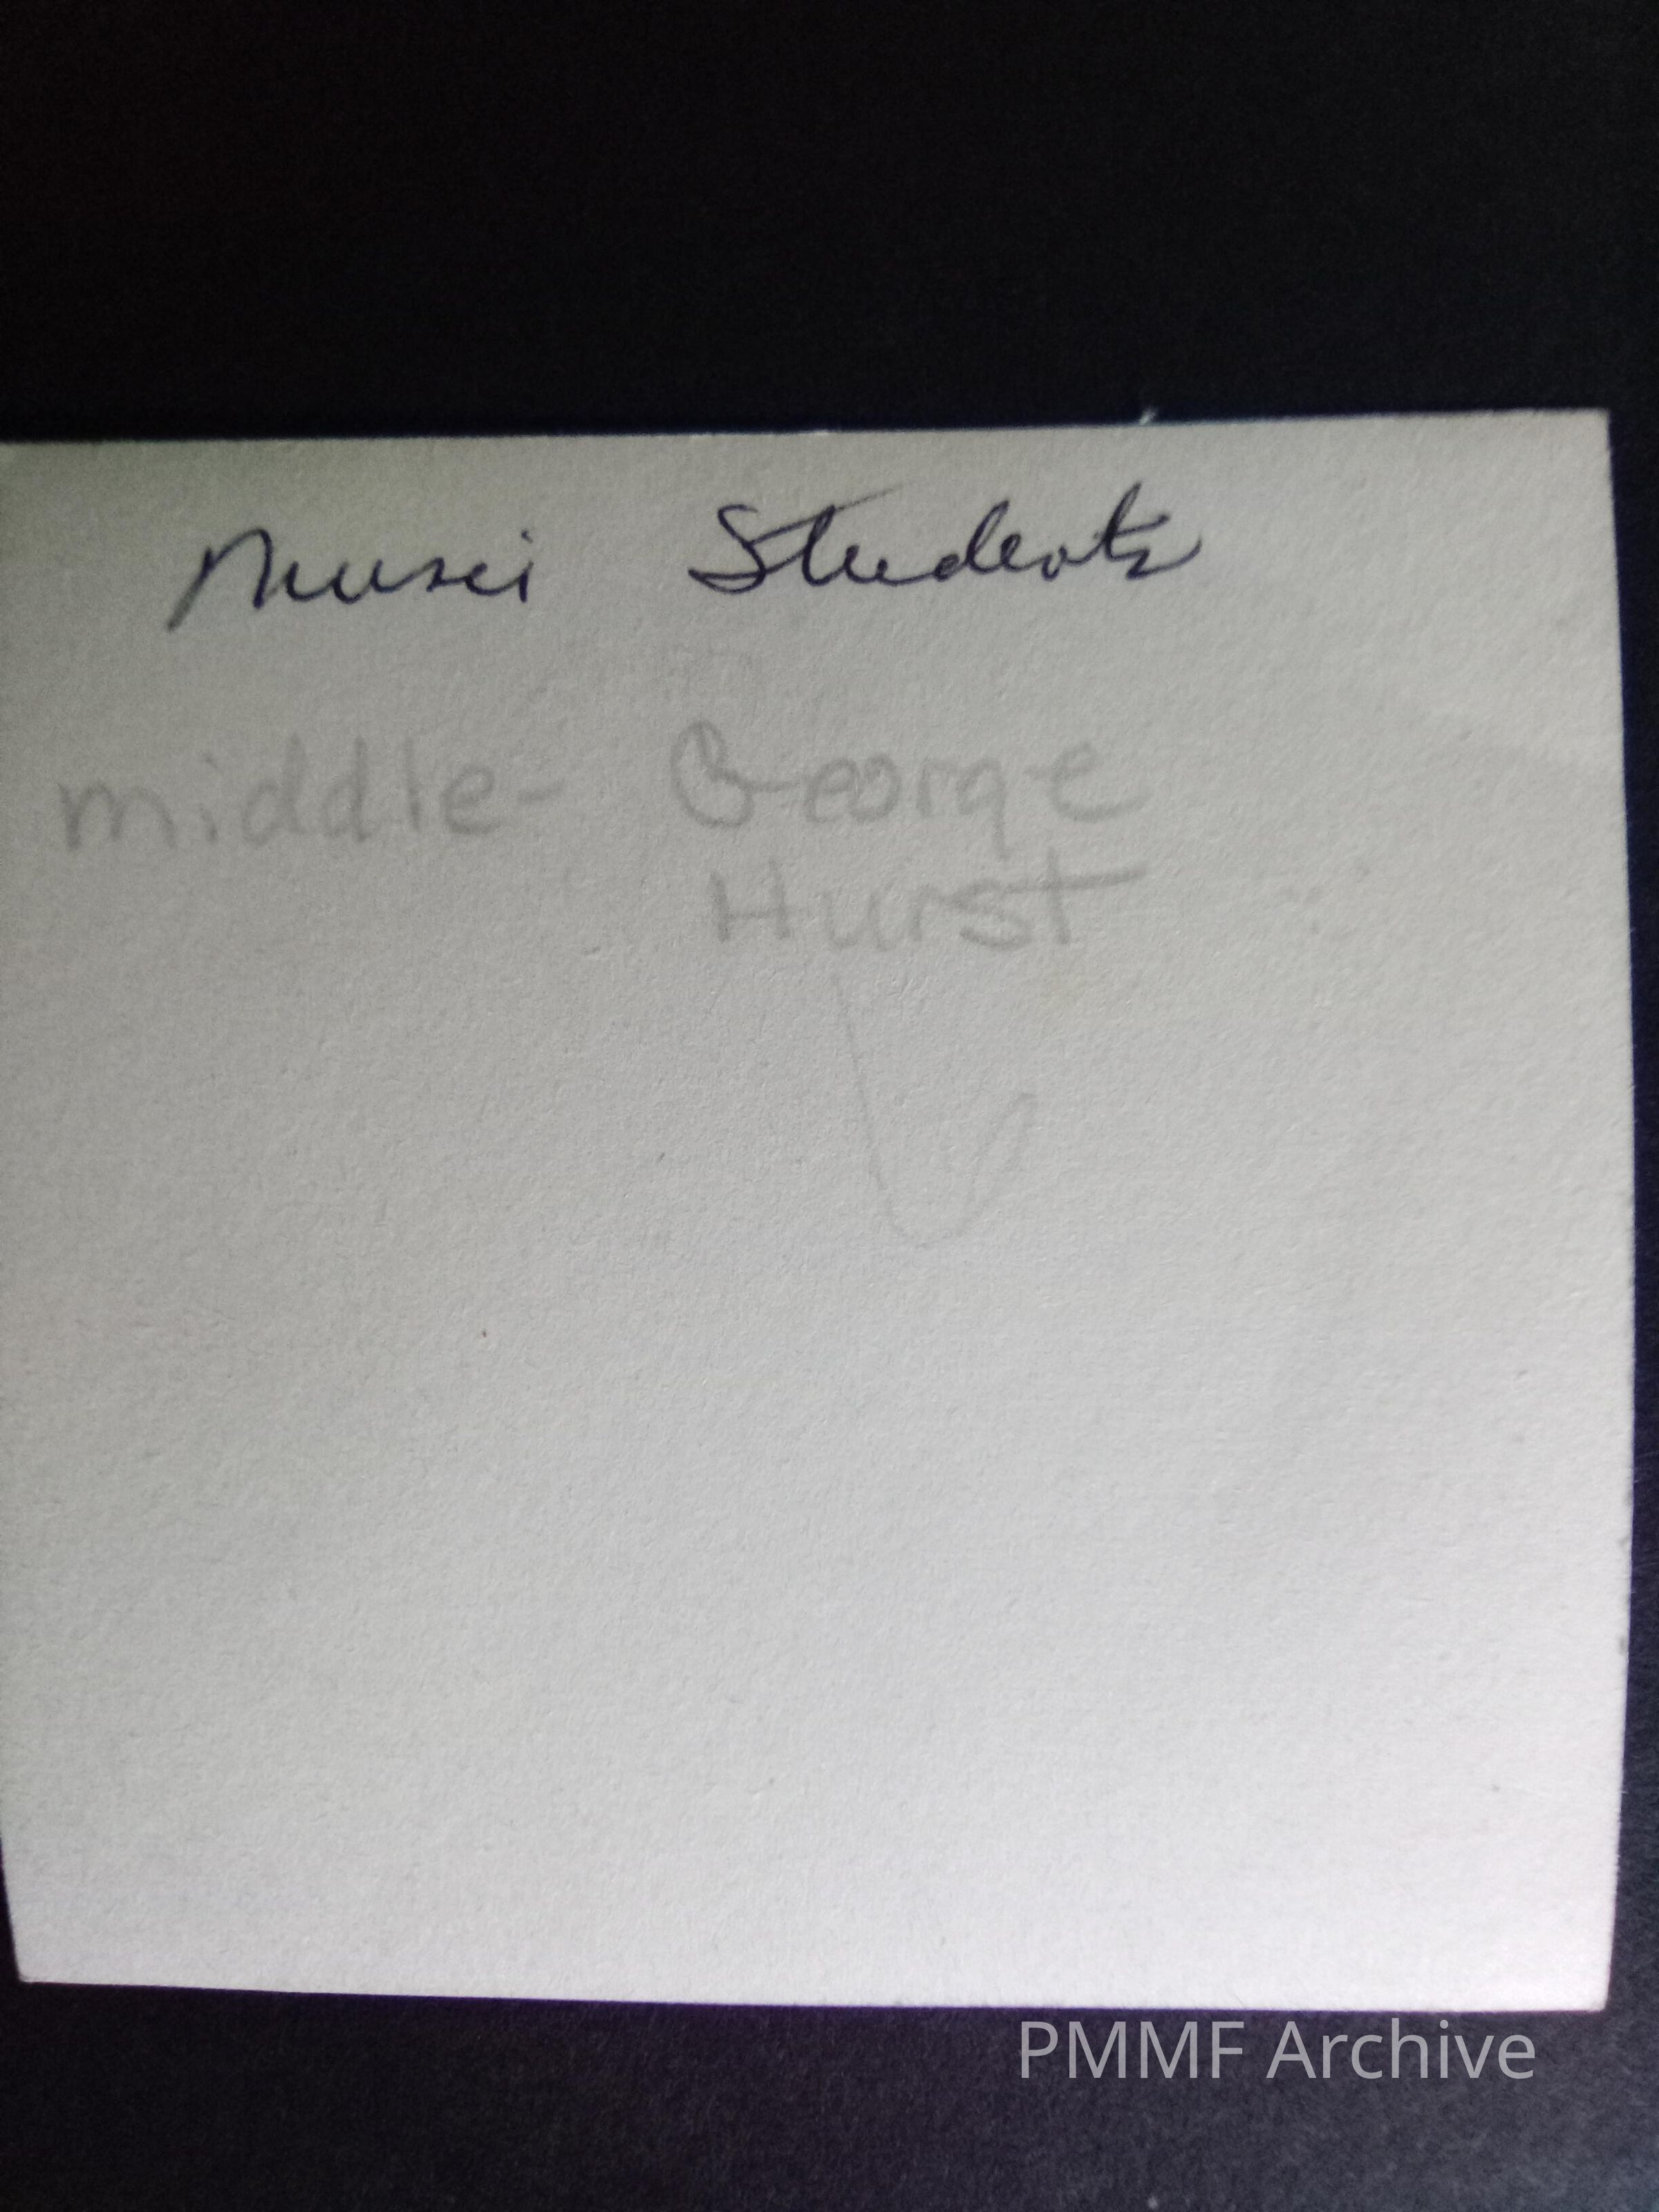 Musei Students
middle- George
Hurst
PMMF Archive